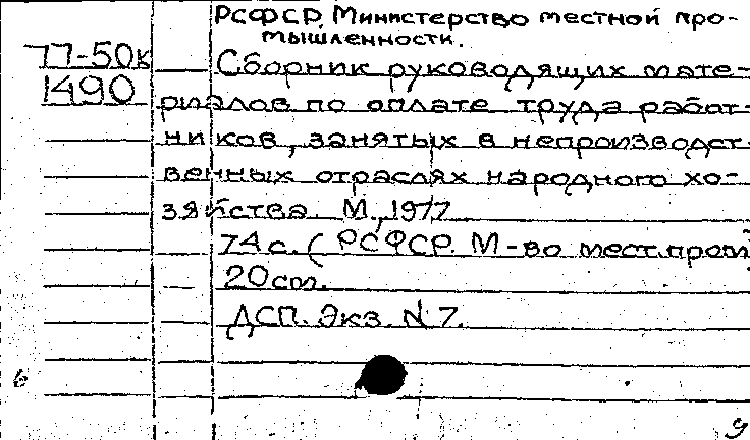 РСФСР. Министерство местной про-
мышленности.
77-50к
1490
Сборник руководящих мате-
риалов по оплате труда работ-
ников, занятых в непроизводст-
венных отраслях народного хо-
зяйства. М., 1977
74 с. ( РСФСР. М-во мест.пром
20см.
ДСП. Экз. N 7.
6
9